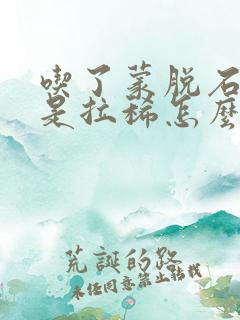 喫了蒙脫石
是拉稀怎麽
荒誕的路
未经同意禁止转载